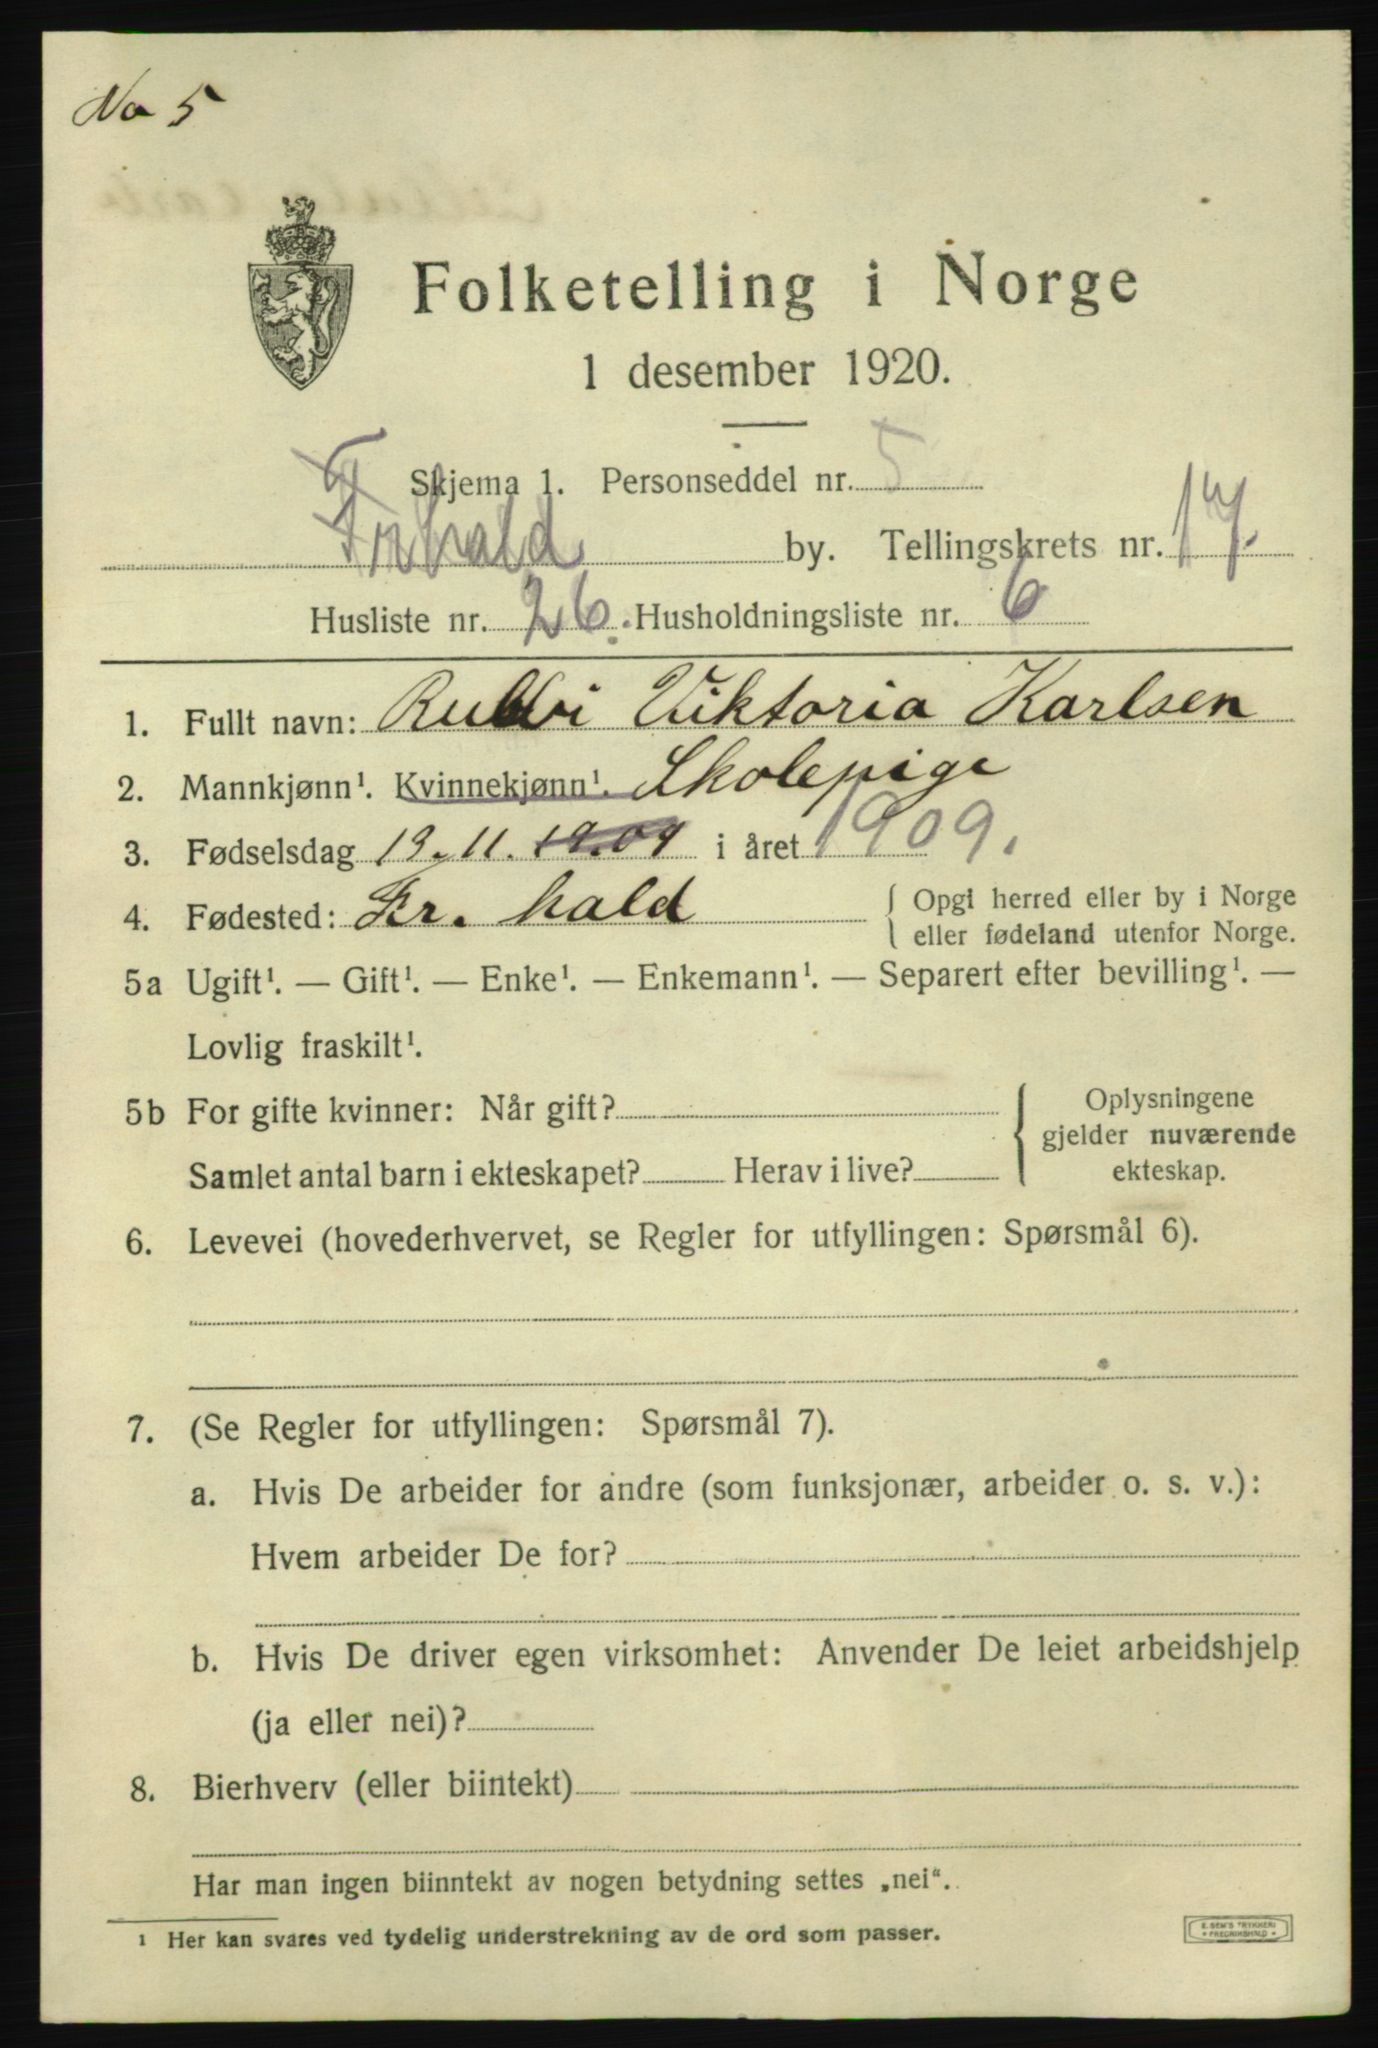 No 5
Folketelling i Norge
1 desember 1920.
Skjema 1. Personseddel nr. 5
Frhald by. Tellingskrets nr. 17.
Husliste nr. 26. Husholdningsliste nr. 6
1. Fullt navn: Viktoria Karlsen
2. Mannkjønn¹. Kvinnekjønn¹. Skolepige
3. Fødselsdag 13. 11. 1909 i året 1909.
4. Fødested: Fr. hald { Opgi herred eller by i Norge
eller fødeland utenfor Norge.
5a Ugift¹. — Gift¹. — Enke¹. — Enkemann¹. — Separert efter bevilling¹. —
Lovlig fraskilt¹.
5b For gifte kvinner: Når gift? { Oplysningene
gjelder nuværende
Samlet antal barn i ekteskapet? Herav i live? ekteskap.
6. Levevei (hovederhvervet, se Regler for utfyllingen: Spørsmål 6).
7. (Se Regler for utfyllingen: Spørsmål 7).
a. Hvis De arbeider for andre (som funksjonær, arbeider o. s. v.):
Hvem arbeider De for?
b. Hvis De driver egen virksomhet: Anvender De leiet arbeidshjelp
(ja eller nei)?
8. Bierhverv (eller biintekt)
Har man ingen biinntekt av nogen betydning settes „nei“.
¹ Her kan svares ved tydelig understrekning av de ord som passer.
E. SEM'S TRYKKERI
* FREDRIKSHALD *